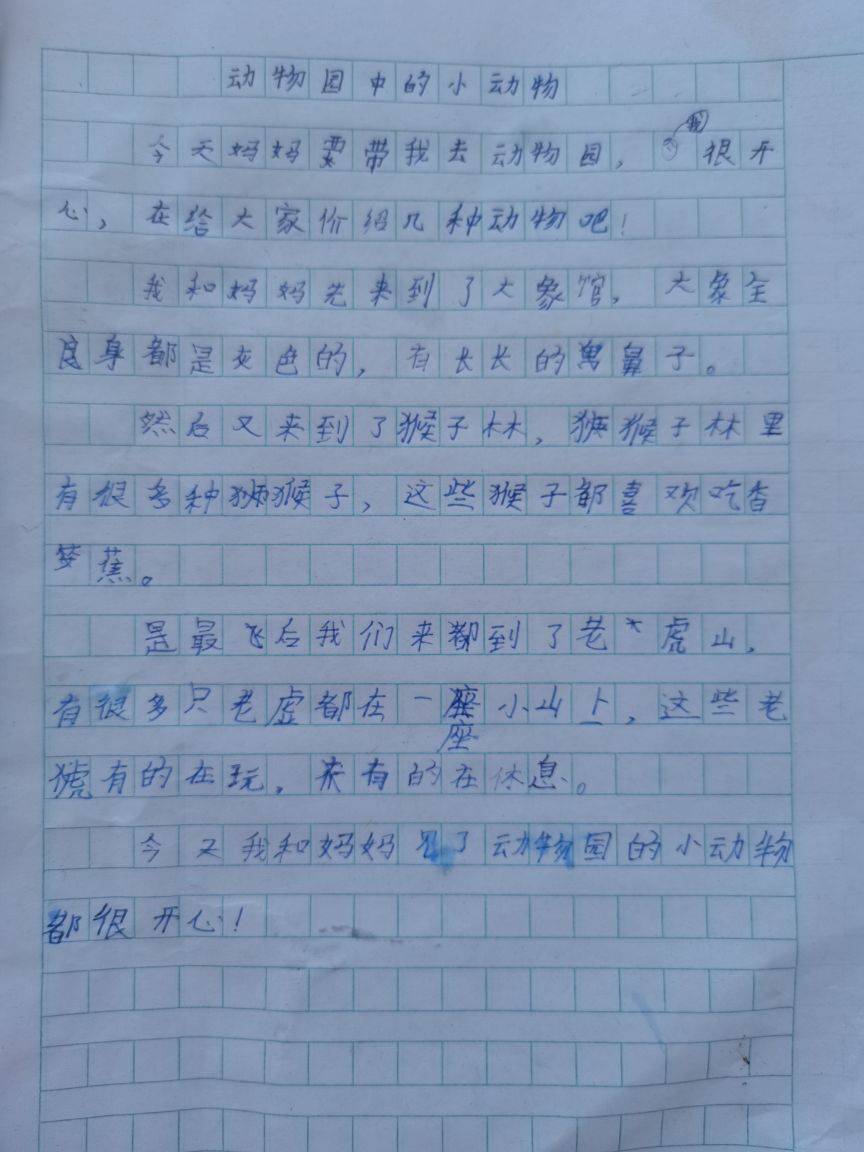 动物园中的小动物
今天妈妈要带我去动物园，我很开
心，在给大家价绍几种动物吧！
我和妈妈先来到了大象馆，大象全
身都是灰色的，有长长的鼻子。
然后又来到了猴子林，猴子林里
有很多种猴子，这些猴子都喜欢吃香
蕉。
是最后我们来到了老虎山，
有很多只老虚都在一座小山上，这些老
猇有的在玩，有的在休息。
今天我和妈妈见了动物园的小动物
都很开心！